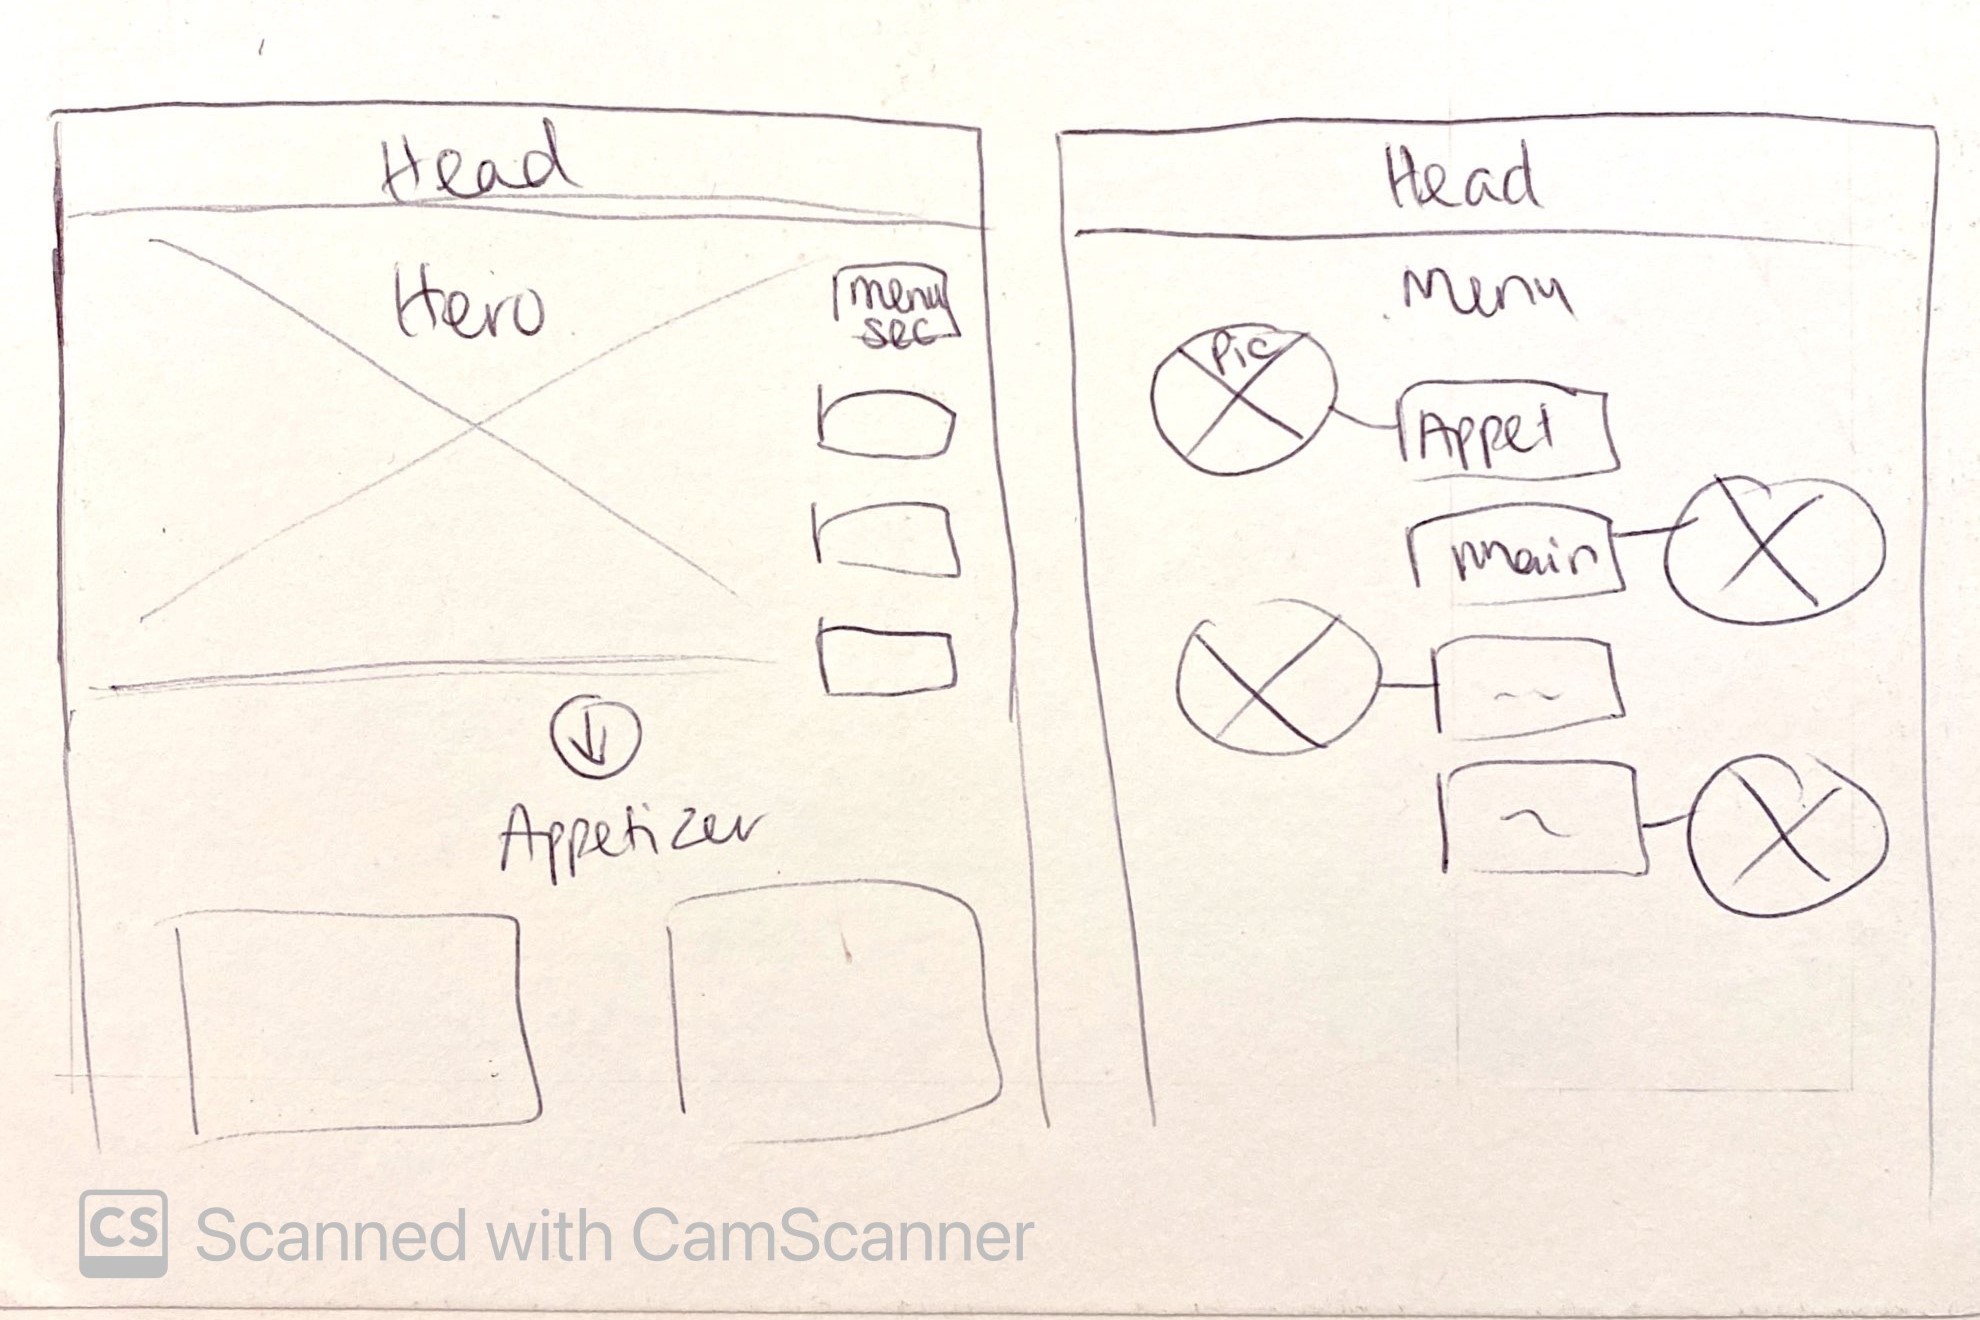 Head
Hero
menu
sec
Appetizer
Head
Menu
Pic
Appet
Main
CS Scanned with CamScanner